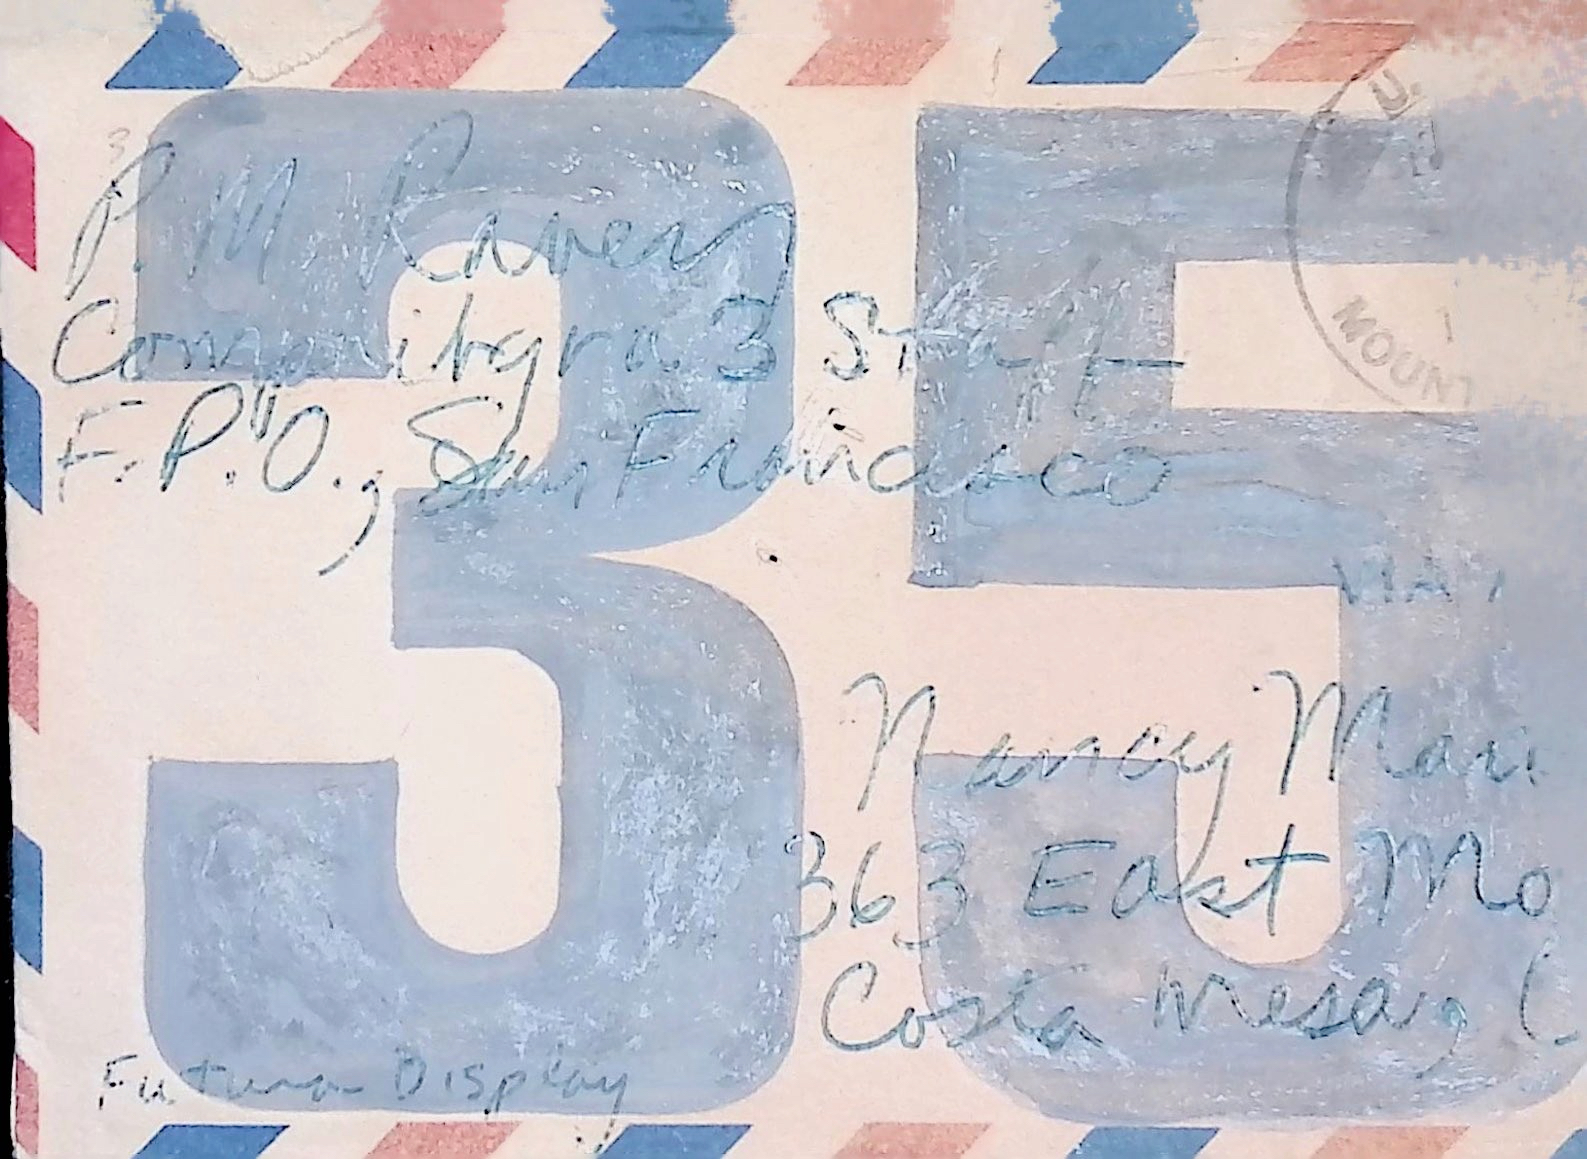 35
P. M. Ravey
Comphibgru 3 Staff
F.P.O., San Francisco
U.
MOUNT
VIA
Nancy Mari
363 East Mo
Costa Mesa, C
Futura Display